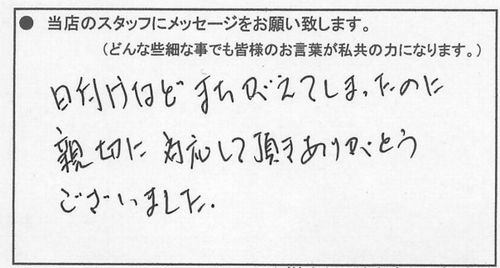 ● 当店のスタッフにメッセージをお願い致します。
（どんな些細な事でも皆様のお言葉が私共の力になります。）
日付けなど まちがえてしまったのに
親切に 対応して頂きありがとう
ございました.